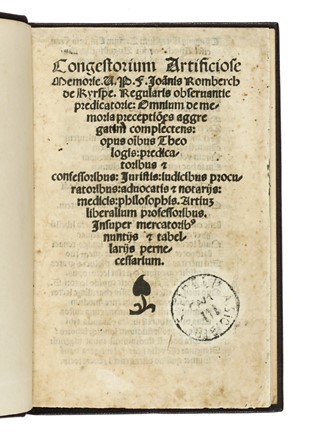 Congestorium Artificiose
Memorie. U. P. F. Joānis Romberch
de Kyrspe. Regularis observantie
predicatorie: Omnium de me-
moria preceptiōes aggre
gatim complectens:
opus oībus Theo
logis: predica-
toribus &
confessoribus: Juristis: iudicibus procu
ratoribus: advocatis & notarijs:
medicis: philosophis. Artiuȝ
liberalium professoribus.
Insuper mercatoribꝰ
nuntijs & tabel-
larijs perne-
cessarium.